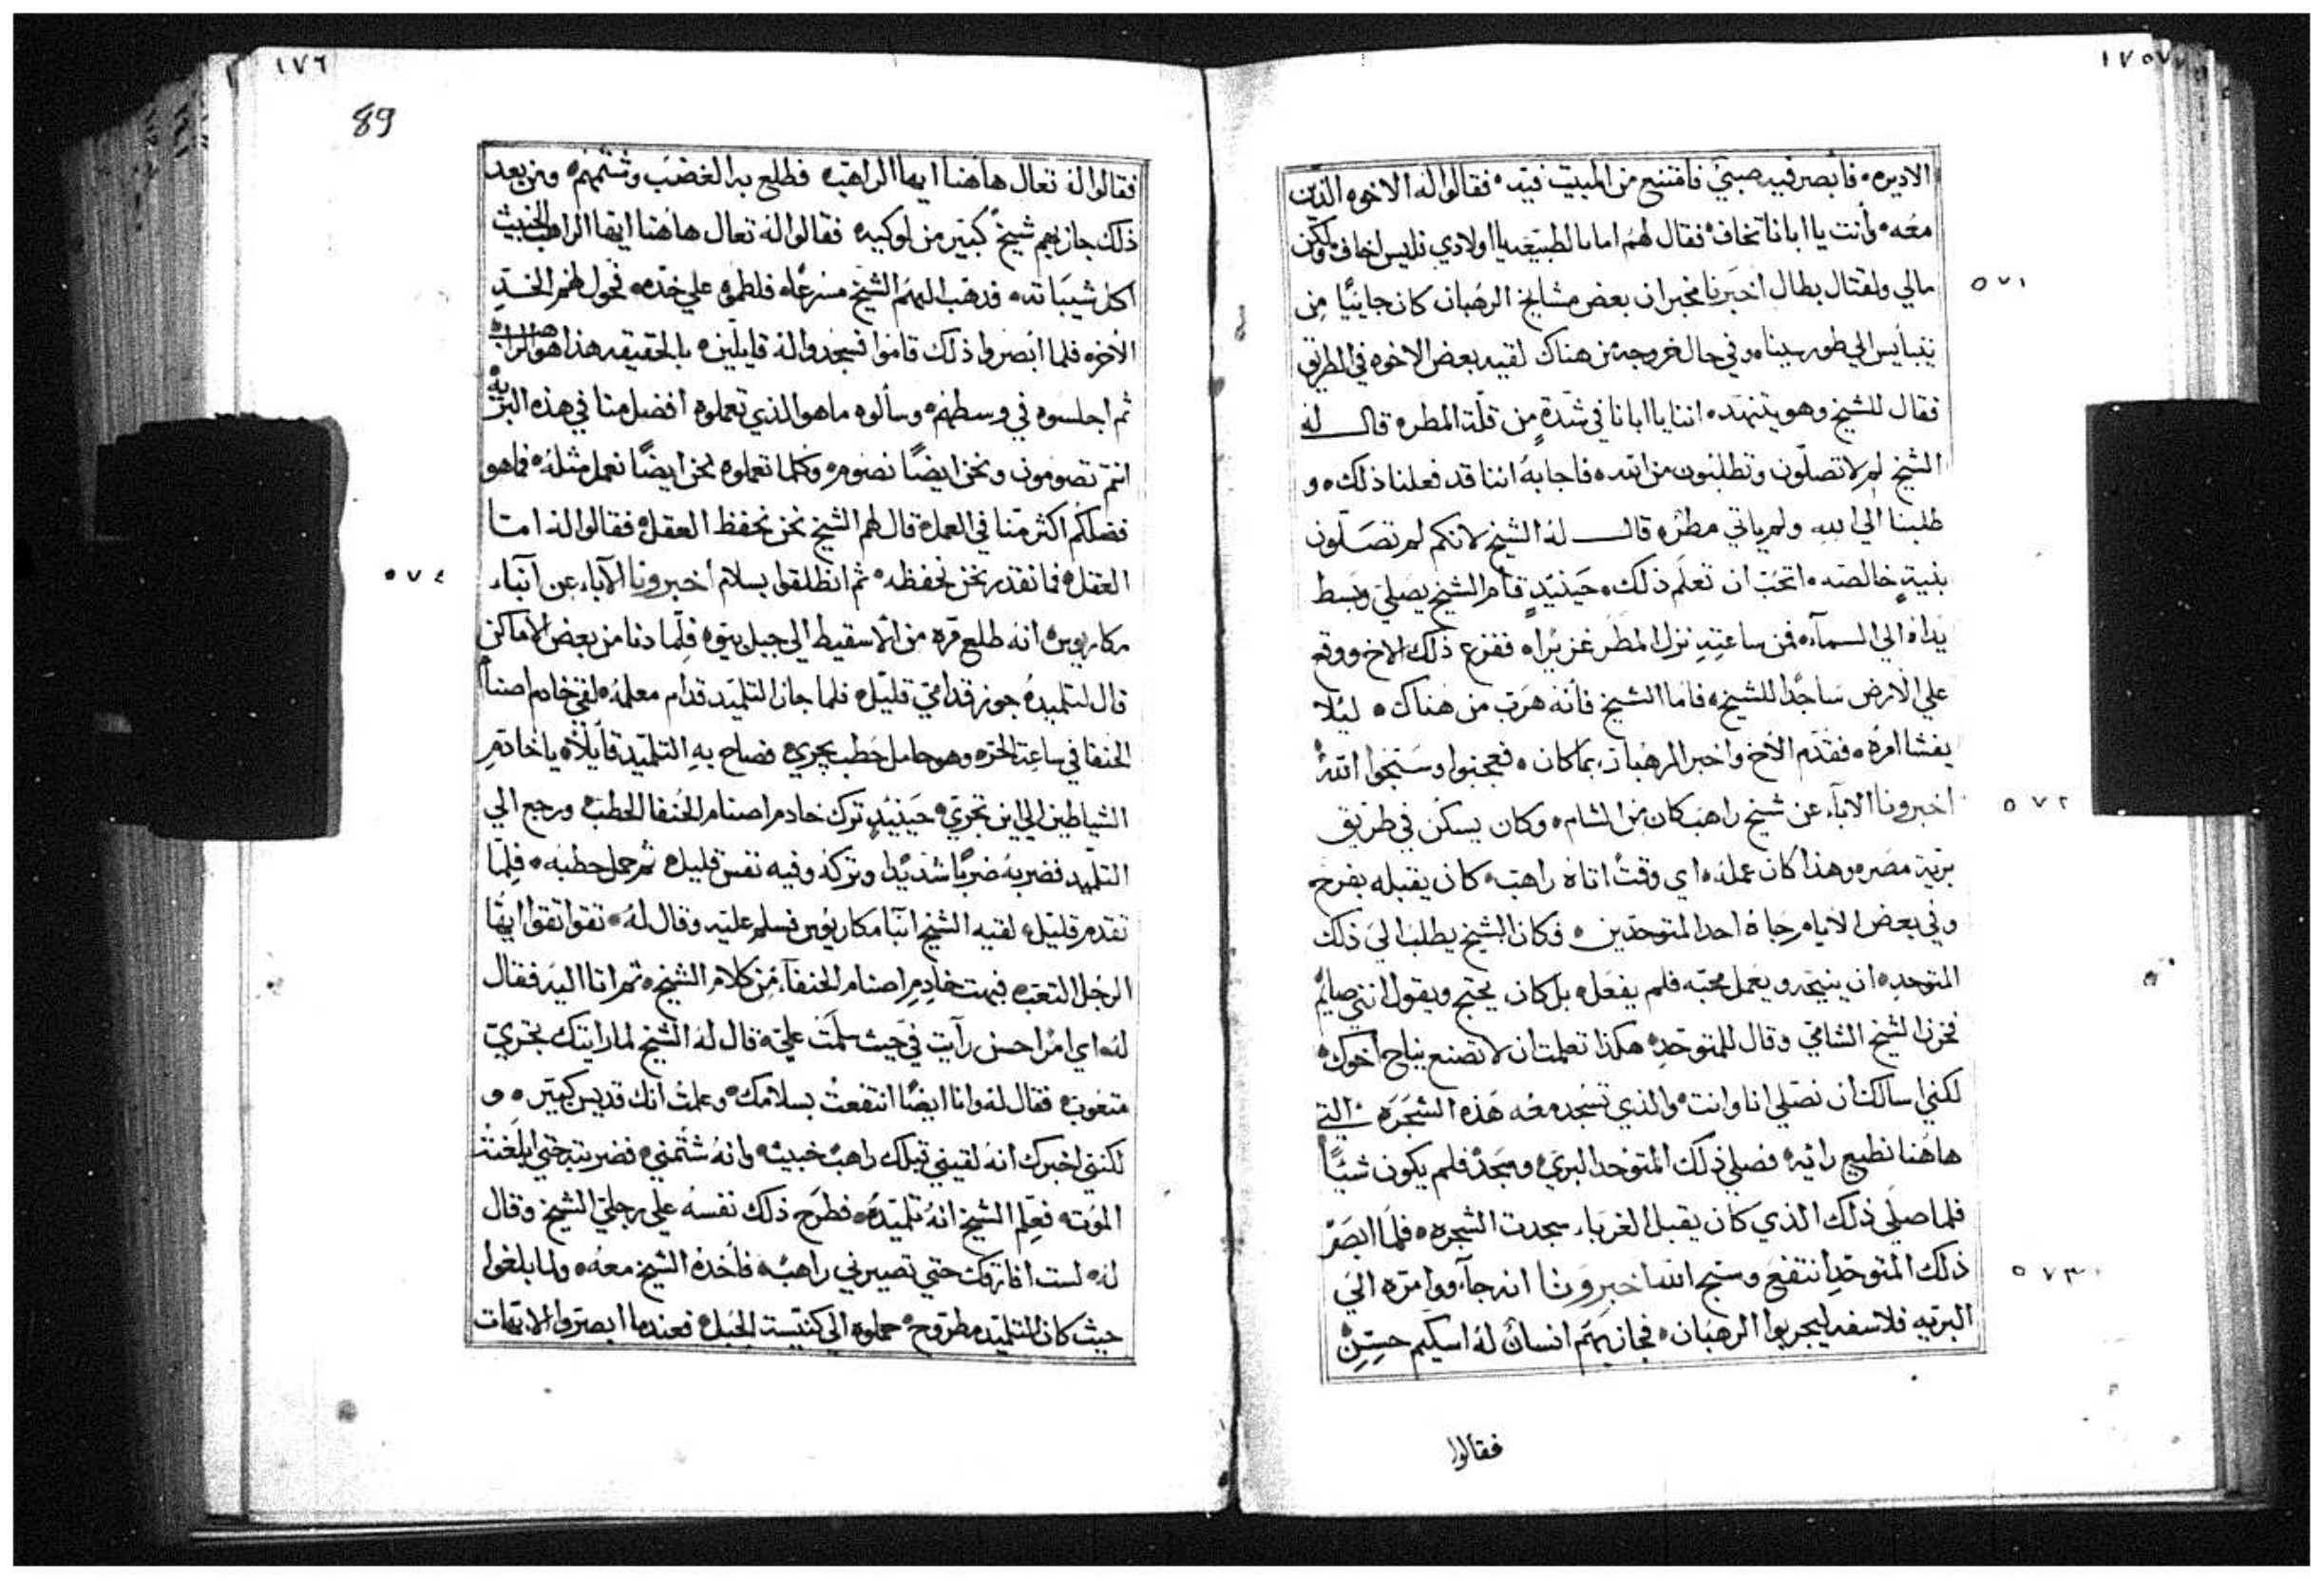 ١٧٥
الاديره ٥ فأبصر فيه صبيّ فامتنع من المبيت فيه ٥ فقالوا له الاخوه الذين
معه ٥ وأنت يا ابانا تخاف ٥ فقال لهم اما بالطبيعه يا اولادي فليس اخاف ولكن
٥٧١
مالي ولقتال بطال اخبرنا مخبر ان بعض مشايخ الرهبان كان جاييًا من
الي طور سينا ٥ وفي حال خروجه من هناك لقيه بعض الاخوه في الطريق
فقال للشيخ وهو يتنهد ٥ اننا يا ابانا في شدةٍ من قلة المطر ٥ قال له
الشيخ لم لا تصلّون وتطلبون من الله ٥ فاجابهُ اننا قد فعلنا ذلك ٥ و
طلبنا الي الله ولم ياتي مطر ٥ قال لهُ الشيخ لانكم لم تصَلّون
بنيةٍ خالصه ٥ اتحب ان تعلم ذلك ٥ حينيذٍ قام الشيخ يصلي وبسط
يداهُ الي السمآء ٥ فمن ساعتهِ نزل المطر غزيرًا ٥ ففزع ذلك الاخ ووقع
علي الارض ساجدًا للشيخ ٥ فاما الشيخ فأنه هرب من هناك ٥ ليُلا
يفشا امرهُ ٥ فقدم الاخ واخبر الرهبان بما كان ٥ فعجبوا وسبّحوا اللهُ
٥٧٢
اخبرونا الابآء عن شيخ راهب كان من الشام ٥ وكان يسكن في طريق
برّية مصر ٥ وهذا كان عمله ٥ اي وقتٌ اتاهُ راهب ٥ كان يقبله بفرح
وفي بعض الايام جاهُ احد المتوحدين ٥ فكان الشيخ يطلب الي ذلك
المتوحد ٥ ان ينيّح ويعمل محبّه فلم يفعل ٥ بل كان يحتج ويقول انني صايمٌ
فحزن الشيخ الشامي وقال للمتوحد ٥ هكذا تعلمت ان لا تصنع نياح اخوك ٥
لكني اسالك ان نصلي انا وانت ٥ والذي تسجد معه هذه الشجره التي
هاهنا نطيع رائيه ٥ فصلي ذلك المتوحد البري وسجد فلم يكون شيًا
فلما صلي ذلك الذي كان يقبل الغرباء سجدت الشجره ٥ فلما ابصَر
٥٧٣
ذلك المتوحد انتفع وسبّح الله اخبرونا انه جآءوا مره الي
البريه فلاسفه ليجربوا الرهبان ٥ فجاز بهم انسان لهُ اسكيم حسن
فقالوا
١٧٦
89
فقالوا له تعال هاهنا ايها الراهب ٥ فطلع به الغضب وشتمهم ٥ ومن بعد
ذلك جاز بهم شيخٌ كبير من لوكيه ٥ فقالوا له تعال هاهنا ايها الراهب الخبيث
اكل ٥ فذهب اليهم الشيخ مسرعًا ٥ فلطموه علي خدّه ٥ فحول لهم الخد
الآخر ٥ فلما ابصروا ذلك قاموا فسجدوا له قايلين ٥ بالحقيقه هذا هو الراهب
ثم اجلسوه في وسطهم ٥ وسألوه ما هو الذي تعملوه افضل منا في هذه البريه
انتم تصومون ونحن ايضًا نصوم ٥ وكلما تعملوه نحن ايضًا نعمل مثلهُ ٥ فما هو
فضلكم اكثر منّا في العمل ٥ قال لهم الشيخ نحن نحفظ العقل ٥ فقالوا له امّا
٥٧٤
العقل ٥ فما نقدر نحن نحفظه ٥ ثم انطلقوا بسلام اخبرونا الآباء عن انباء
مكاريوس ٥ انه طلع مره من الاسقيط الي جبل ٥ فلما دنا من بعض الاماكن
قال لتلميده جوز قدامي قليل ٥ فلما جاز التلميد قدام معلمه ٥ لقي خادم اصنام
الحنفا في ساعة الحر ٥ وهو حامل حطب يجري ٥ فصاح بهِ التلميد قأيلًا ٥ يا خادم
الشياطين الي اين تجري ٥ حينيذٍ ترك خادم اصنام الحنفا الحطب ٥ ورجع الي
التلميد فضربه ضربًا شديدًا ٥ وتركهُ وفيه نفس قليل ٥ ثم حمل حطبه ٥ فلمّا
تقدم قليل ٥ لقيه الشيخ انبا مكاريوس فسلم عليه وقال لهُ ٥ تقوا تقوا ايها
الرجل التعب ٥ فبهت خادم اصنام الحنفآء من كلام الشيخ ٥ ثم اتا اليه فقال
لهُ اي امرًا حسن رآيت فيّ حيث سلمت عليّ ٥ قال لهُ الشيخ لما رايتك تجري
متعوب ٥ فقال له وانا ايضًا انتفعتُ بسلامك ٥ وعلمتُ انك قديس كبير ٥ و
لكنني اخبرك انه لقيني قبلك راهبٌ خبيث ٥ وانهُ شتمني ٥ فضربته حتي ابلغته
الموت ٥ فعلم الشيخ انهُ تلميده ٥ فطرح ذلك نفسهُ علي رجلي الشيخ وقال
له ٥ لست افارقك حتي تصيرني راهب ٥ فأخذهُ الشيخ معه ٥ ولما بلغوا
حيث كان التلميد مطروح ٥ حملوه الي كنيسة الجبل ٥ فعندما ابصروا الابهات